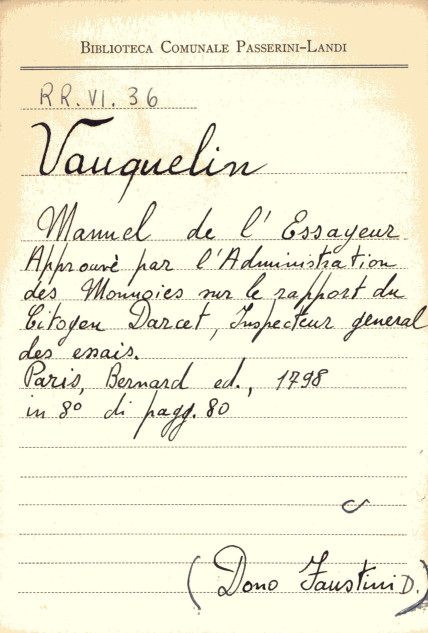 BIBLIOTECA COMUNALE PASSERINI-LANDI
RR. VI. 36
Vauquelin
Manuel de l'Essayeur
Approuvè par l'Administration
des Monnoies sur le rapport du
Citogen Darcet, Inspecteur general
des essais.
Paris, Bernard ed., 1798
in 8° di pagg. 80
(Dono Faustini D.)